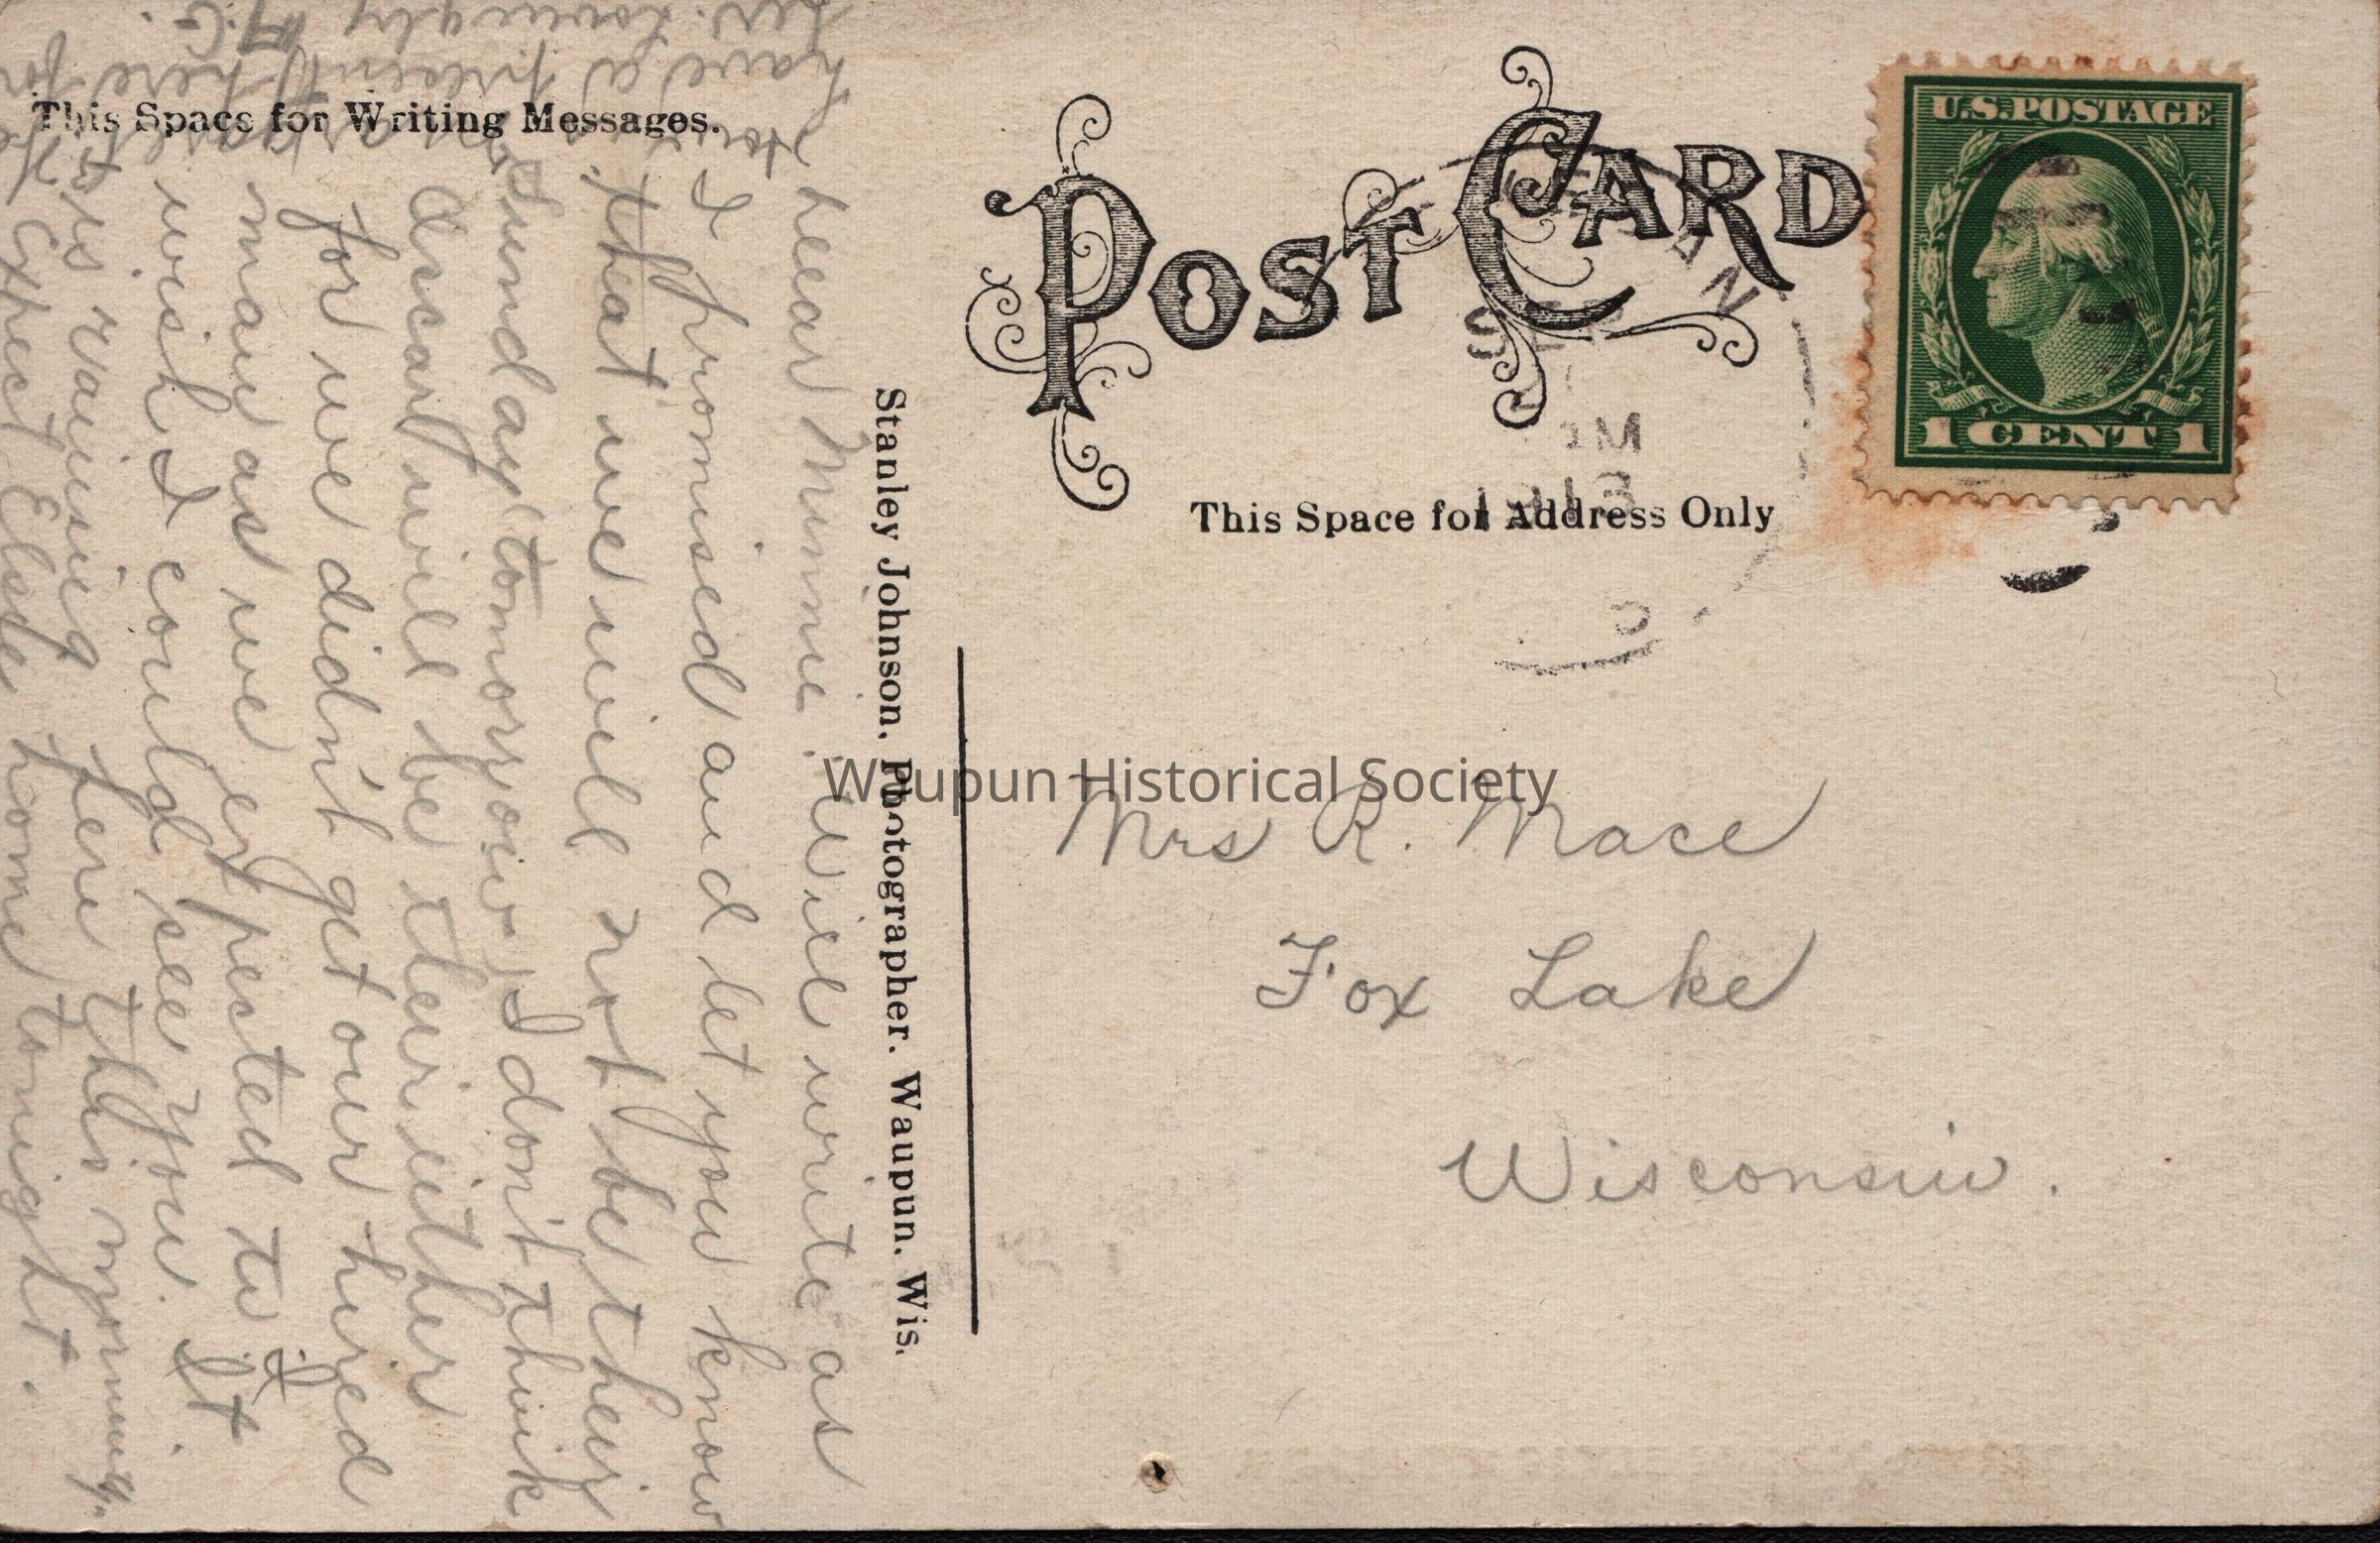 This Space for Writing Messages.
POST CARD
U.S. POSTAGE
1 CENT 1
SEP
PM
1913
This Space for Address Only
Stanley Johnson. Photographer. Waupun. Wis.
Waupun Historical Society
Mrs R. Mace
Fox Lake
Wisconsin.
Dear Minnie. Will write as
I promised and let you know
that we will not be their
Sunday tomorrow, I don't think
Oscar will be their either
for we didn't get our hired
man as we expected to. I
wish I could see you. It
is raining here this morning.
Expect Elsie home tonight.
have a present here for
her. Lovingly A.G.